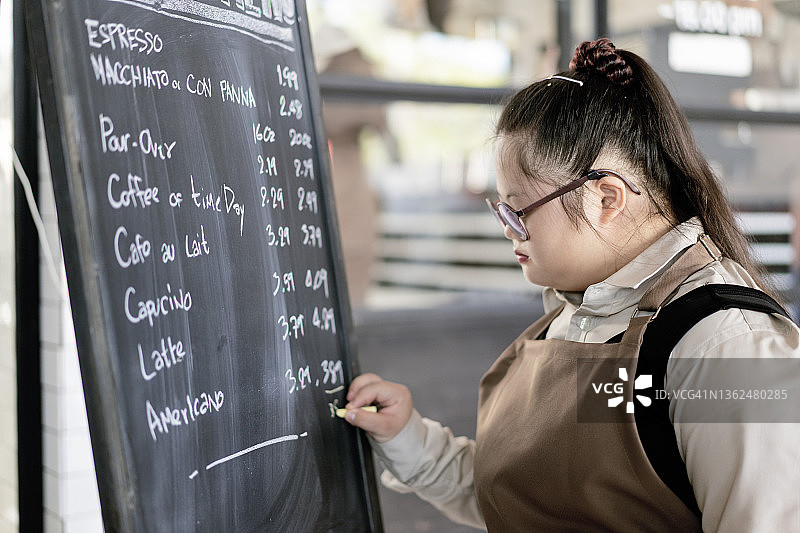 ESPRESSO 1.99
MACCHIATO or CON PANNA 2.48
16oz 20oz
Pour-Over 2.19 2.59
Coffee of time Day 2.29 2.49
Cafo au Lait 3.29 3.79
Capucino 3.59 4.09
Latte 3.79 4.29
Americano 3.29 389
VCG
VCG41N1362480285